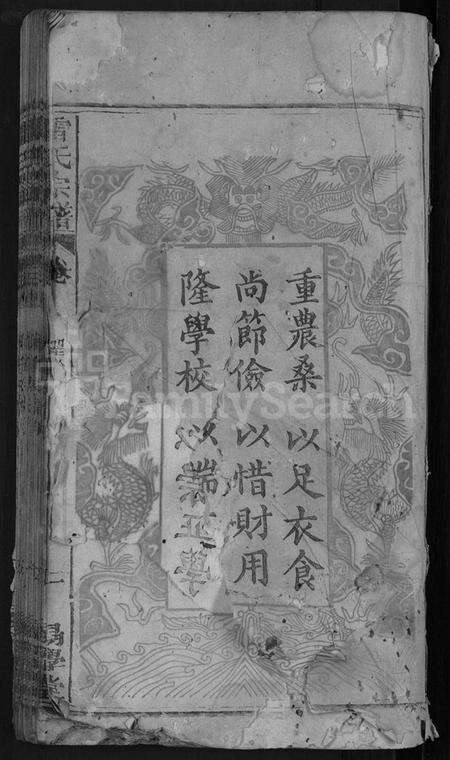 重農桑 以足衣食
尚節儉 以惜財用
隆學校 以端正學
雷氏宗譜
卷
FamilySearch